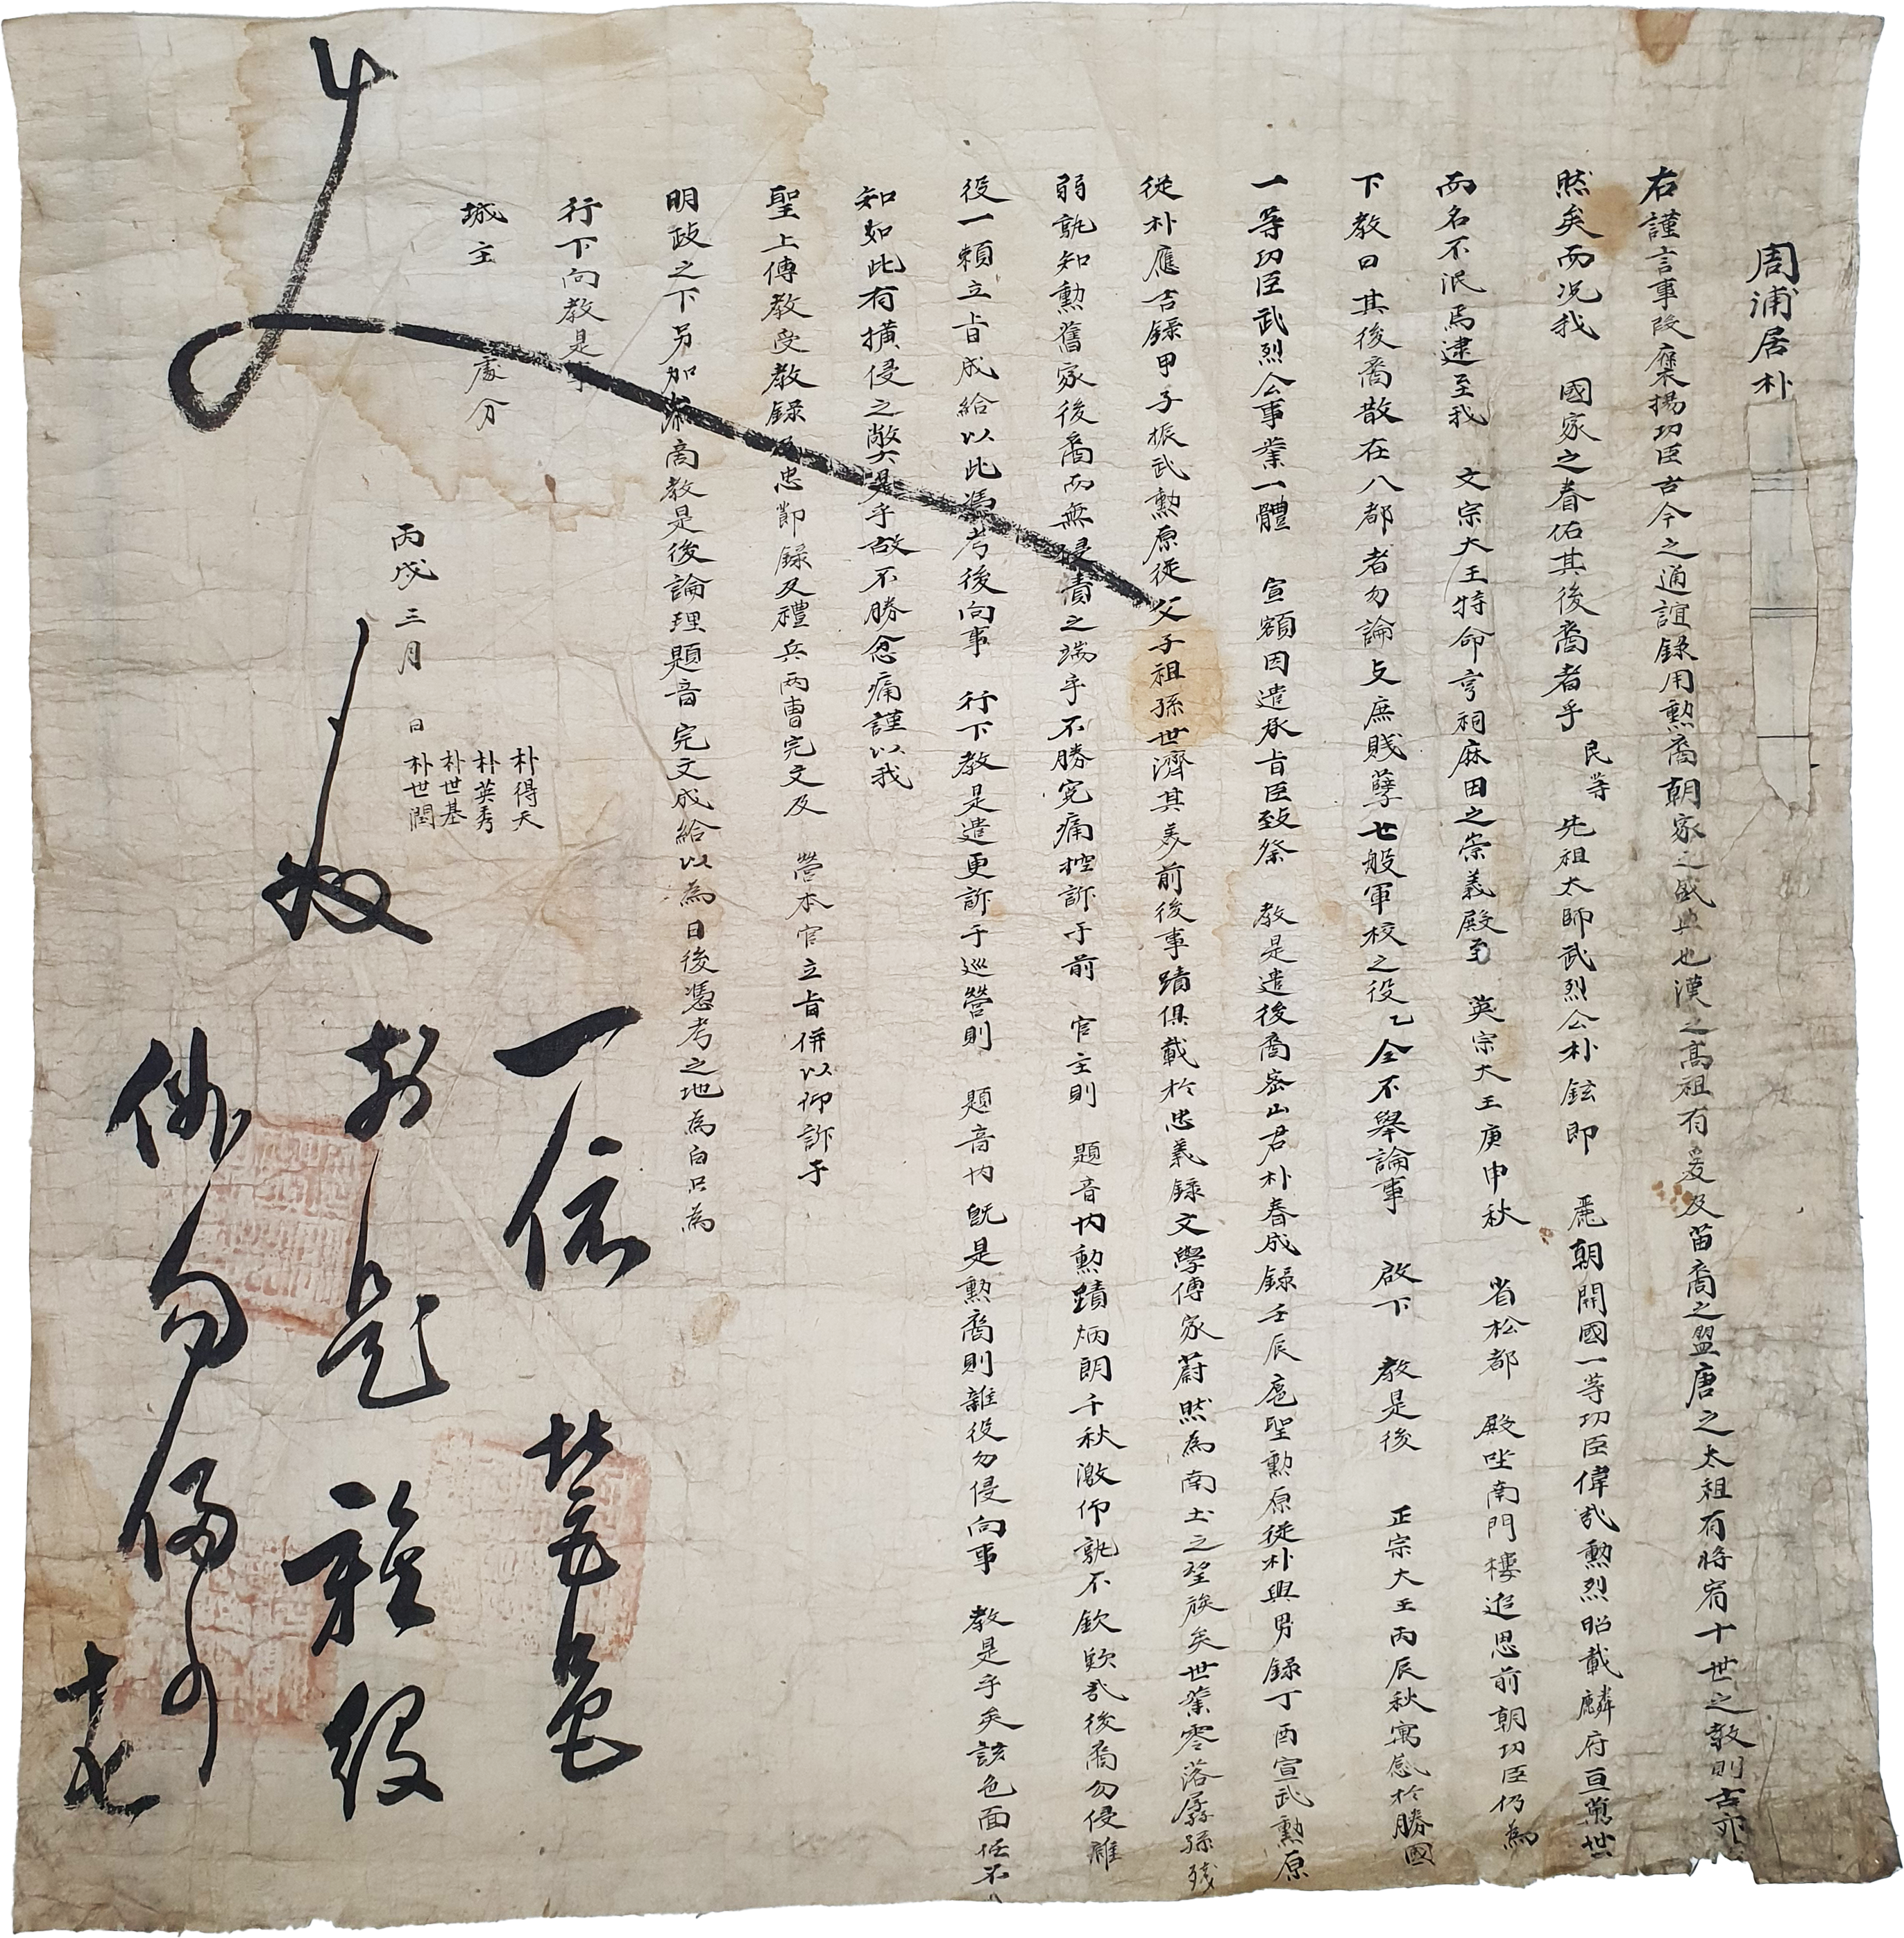 周浦居朴
右謹言事段褒揚功臣古今之通誼錄用勲裔朝家之盛典也漢之高祖有爰及苗裔之盟唐之太祖有將宥十世之敎則古亦
然矣而况我 國家之眷佑其後裔者乎 民等 先祖太師武烈公朴鉉即 麗朝開國一等功臣偉哉勲烈昭載麟府亘萬世
而名不泯焉逮至我 文宗大王特命享祠麻田之崇義殿至 英宗大王庚申秋 省松都 殿坐南門樓追思前朝功臣仍為
下敎曰其後裔散在八都者勿論支庶賤孽世般軍校之役乙全不擧論事 啟下 敎是後 正宗大王丙辰秋寓感於勝國
一等功臣武烈公事業一體 宣額因遣承旨臣致祭 敎是遣後裔密山君朴春成錄壬辰扈聖勲原從朴興男錄丁酉宣武勲原
從朴應吉錄甲子振武勲原從父子祖孫世濟其美前後事蹟俱載於忠義錄文學傳家蔚然為南土之望族矣世業零落孱孫殘
弱孰知勲舊家後裔而無侵責之端乎不勝寃痛控訴于前 官主則 題音內勲蹟炳朗千秋激仰孰不欽歎哉後裔勿侵雜
役一頼立旨成給以此憑考後向事 行下敎是遣更訴于巡營則 題音內旣是勲裔則雜役勿侵向事 敎是乎矣該色面任不
知如此有撗侵之弊是乎故不勝忿痛謹以我
聖上傳敎受敎錄及忠節錄及禮兵両曹完文及 營本官立旨併以仰訴于
明政之下另加叅商敎是後論理題音完文成給以為日後憑考之地為白只為
行下向敎是事
城主 處分
丙戌三月 日
朴得天
朴英秀
朴世基
朴世潤
一依
營題
前題雜役
勿侵向事
十七